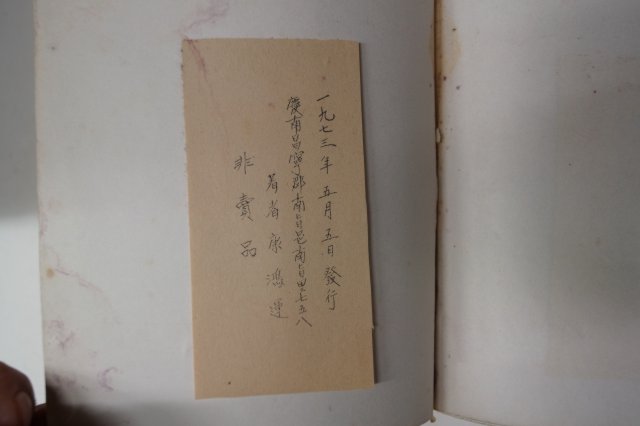 一九七三年 五月 五日 發行
慶南昌寧郡南旨邑南旨里七五八
著者 康鴻運
非賣品